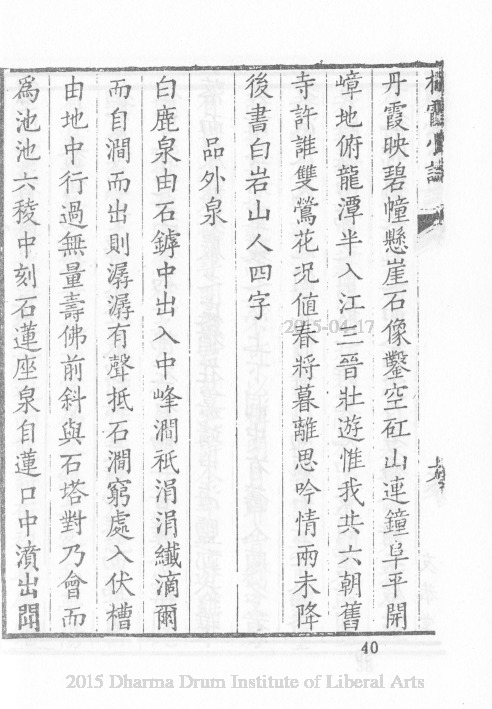 棲霞小誌
丹霞映碧幢懸崖石像鑿空矼山連鐘阜平開
嶂地俯龍潭半入江三晉壯遊惟我共六朝舊
寺許誰雙鶯花況値春將暮離思吟情兩未降
後書白岩山人四字
品外泉
白鹿泉由石罅中出入中峰澗祇涓涓纖滴爾
而自澗而出則潺潺有聲抵石澗窮處入伏槽
由地中行過無量壽佛前斜與石塔對乃會而
爲池池六稜中刻石蓮座泉自蓮口中濆出閗
40
2015-04-17
2015 Dharma Drum Institute of Liberal Arts